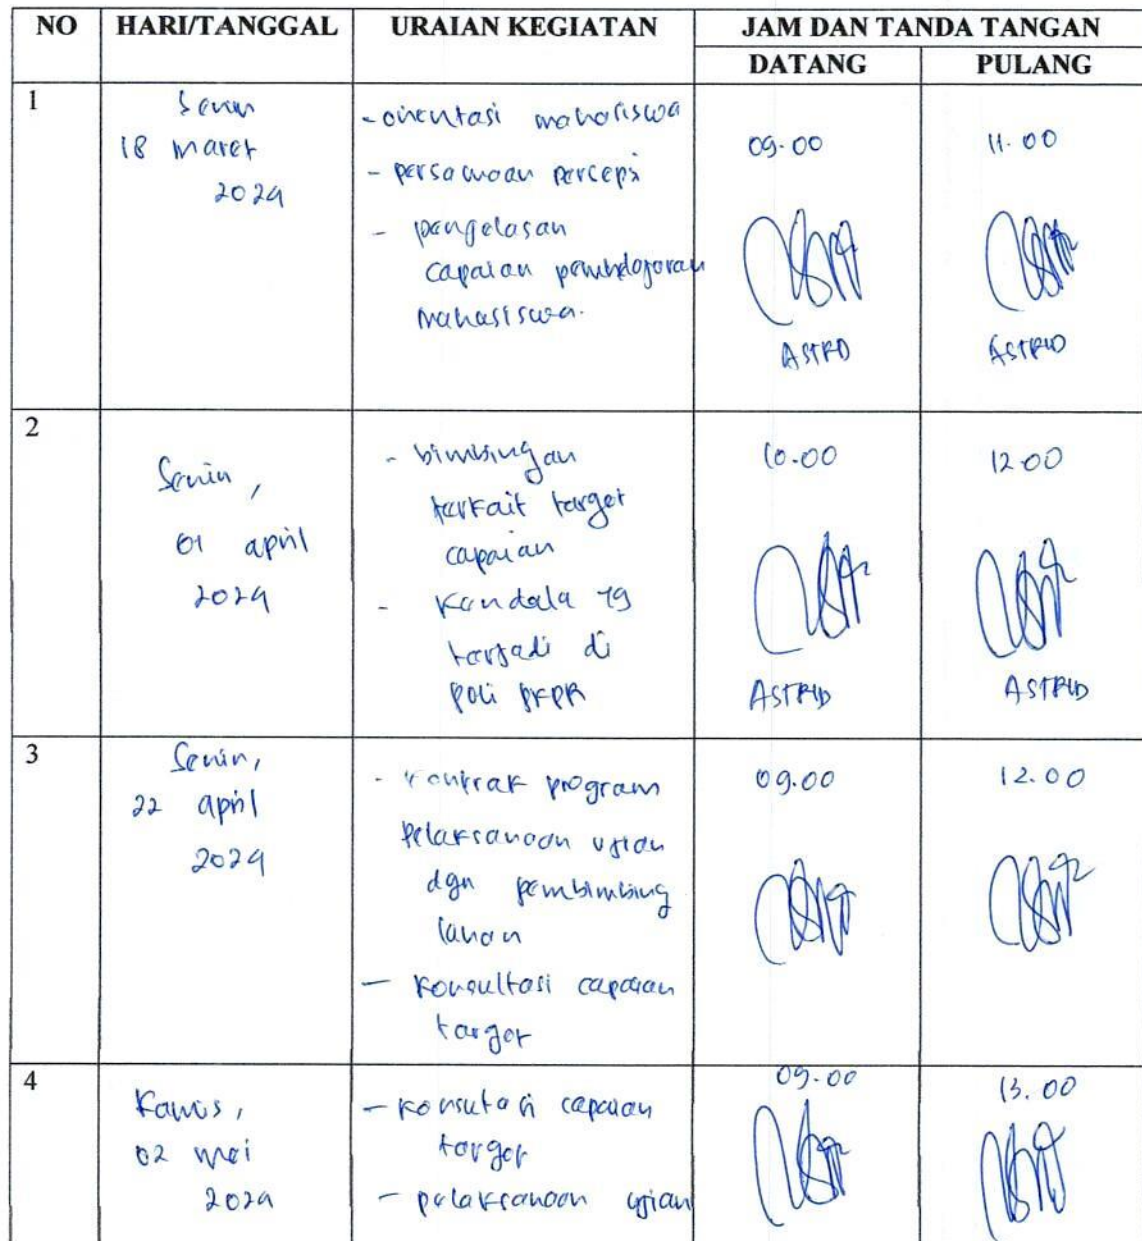 NO HARI/TANGGAL URAIAN KEGIATAN JAM DAN TANDA TANGAN
DATANG PULANG
1
Senin
18 maret
2024
- orientasi mahasiswa
- persamaan persepsi
- pengelasan
capaian pembelajaran
mahasiswa.
09.00
11.00
ASTRID
ASTRID
2
Senin,
01 april
2024
- bimbingan
terkait target
capaian
- Kendala yg
terjadi di
poli PKPR
10.00
12.00
ASTRID
ASTRID
3
Senin,
22 april
2024
- kontrak program
pelaksanaan ujian
dgn pembimbing
lahan
- Konsultasi capaian
target
09.00
12.00
4
Kamis,
02 mei
2024
- konsutasi capaian
target
- pelaksanaan ujian
09.00
13.00